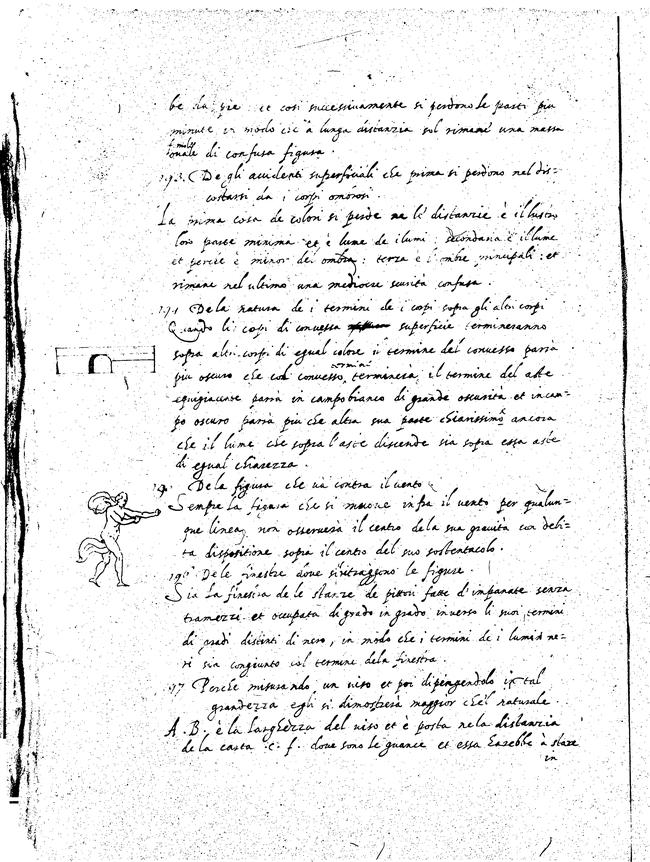 be da pie et cosi successivamente si perdono le parti piu
minute in modo che à lunga distanzia sol rimane una massa
ouale di confusa figura.
193. De gli accidenti superficiali che prima si perdono nel dis-
costarsi da i corpi ombrosi.
La prima cosa de colori si perde ne le distanzie è il lustro
loro parte minima et è lume de i lumi secondaria è il lume
et perche è minor de ombra: terza è l'ombre principali: et
rimane nel ultimo una mediocre scurità confusa.
194 Dela natura de i termini de i corpi sopra gli altri corpi
Quando li corpi di convessa superficie termineranno
sopra altri corpi di egual colore il termine del convesso parrà
piu oscuro che col convesso termine terminerà il termine del aste
equigiacente parrà in campo bianco di grande oscurità et in cam-
po oscuro parrà piu che altra sua parte chiarissimo ancora
che il lume che sopra l'aste discende sia sopra essa aste
di egual chiarezza.
19 Dela figura che và contra il vento
Sempre la figura che si muove infra il vento per qualun-
que linea, non osserverà il centro dela sua gravità con debi-
ta dispositione sopra il centro del suo sostentacolo.
196 Dele finestre dove si ritraggono le figure.
Sia la finestra de le stanze de pittori fatte d'impanate senza
tramezzi et occupata di grado in grado inverso li suoi termini
di gradi distinti di nero, in modo che i termini de i lumi ne-
ri sia congiunto col termine dela finestra.
97 Perche misurando un viso et poi dipingendolo in tal
grandezza egli si dimosterà maggior che'l naturale.
A. B. è la larghezza del viso et è posta nela distanzia
de la carta c. f. dove sono le guance et essa harebbe à stare
in